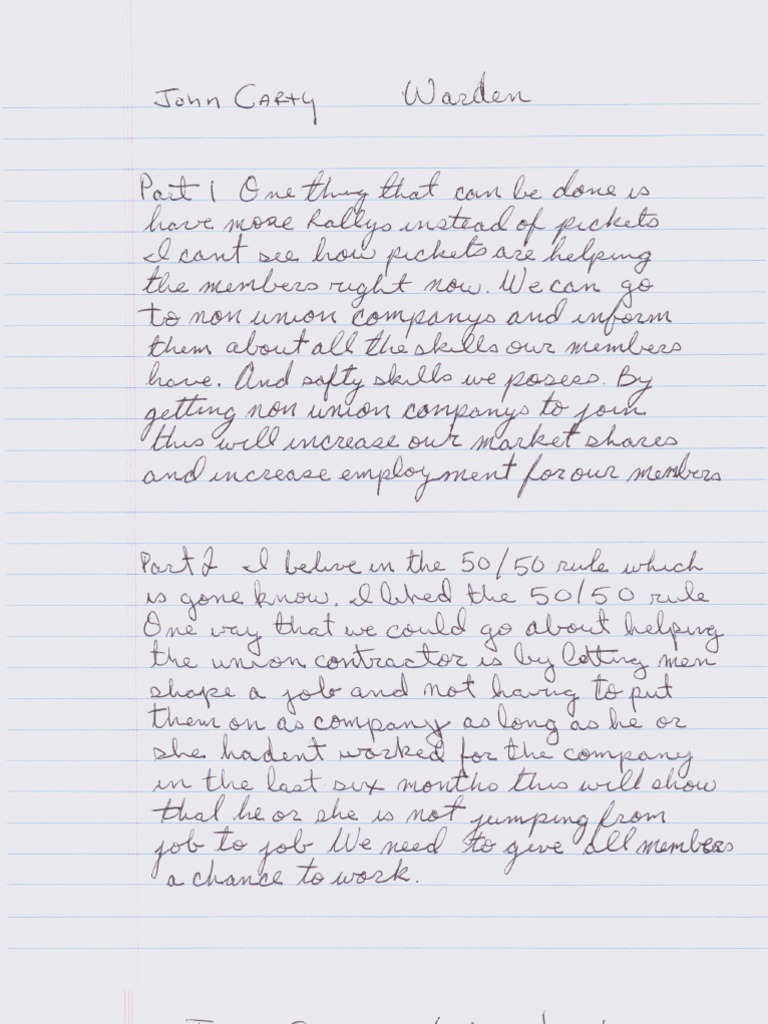 John Carty Warden
Part 1 One thing that can be done is
have more Rallys instead of pickets
I cant see how pickets are helping
the members right now. We can go
to non union companys and inform
them about all the skills our members
have. And safty skills we posees. By
getting non union companys to join
this will increase our market shares
and increase employment for our members
Part 2 I belive in the 50/50 rule which
is gone know. I liked the 50/50 rule
One way that we could go about helping
the union contractor is by letting men
shape a job and not having to put
them on as company as long as he or
she hadent worked for the company
in the last six months this will show
that he or she is not jumping from
job to job We need to give all members
a chance to work.